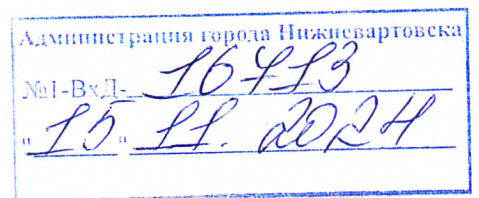 Администрация города Нижневартовска
№1-ВхД- 16413
"15" 11. 2024